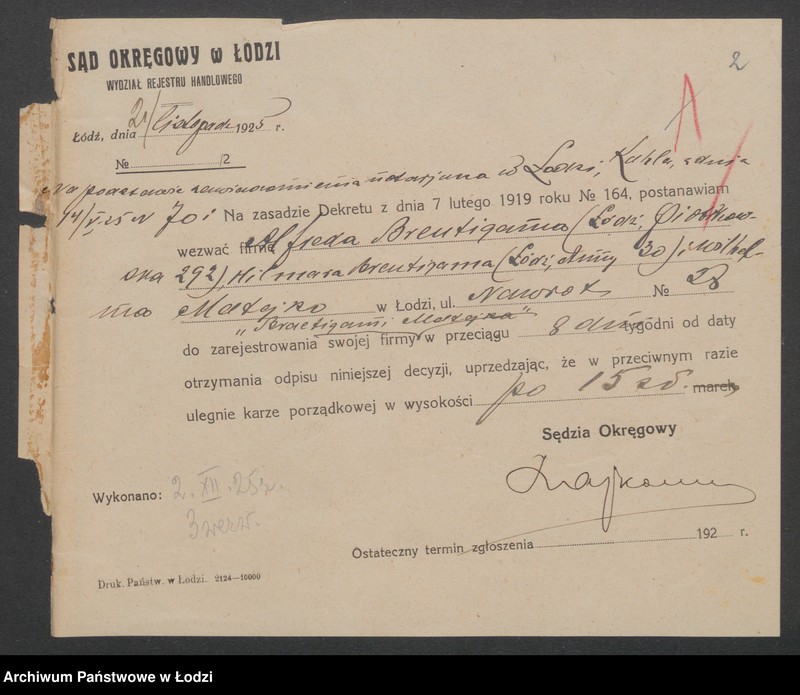 SĄD OKRĘGOWY w ŁODZI
2
WYDZIAŁ REJESTRU HANDLOWEGO
Łódź, dnia 21/ listopada 1925 r.
№ /2
Na podstawie zawiadomienia notarjusza w Łodzi, Kahla, z dnia
14/V.25 N 70 i Na zasadzie Dekretu z dnia 7 lutego 1919 roku № 164, postanawiam
wezwać firmę Alfreda Breutigama (Łódź, Piotrkow-
ska 292) Hilmara Breutigama (Łódź, Anny 30) i Wilhel-
ma Matejko w Łodzi, ul. Nawrot №
"Braetigam i Matejka"
do zarejestrowania swojej firmy w przeciągu 8 dni tygodni od daty
otrzymania odpisu niniejszej decyzji, uprzedzając, że w przeciwnym razie
ulegnie karze porządkowej w wysokości po 15 zł. marek
Sędzia Okręgowy
Wykonano: 2.XII.25 r.
3 wezw.
Ostateczny termin zgłoszenia 192 r.
Druk. Państw. w Łodzi. 2124—10000
Archiwum Państwowe w Łodzi